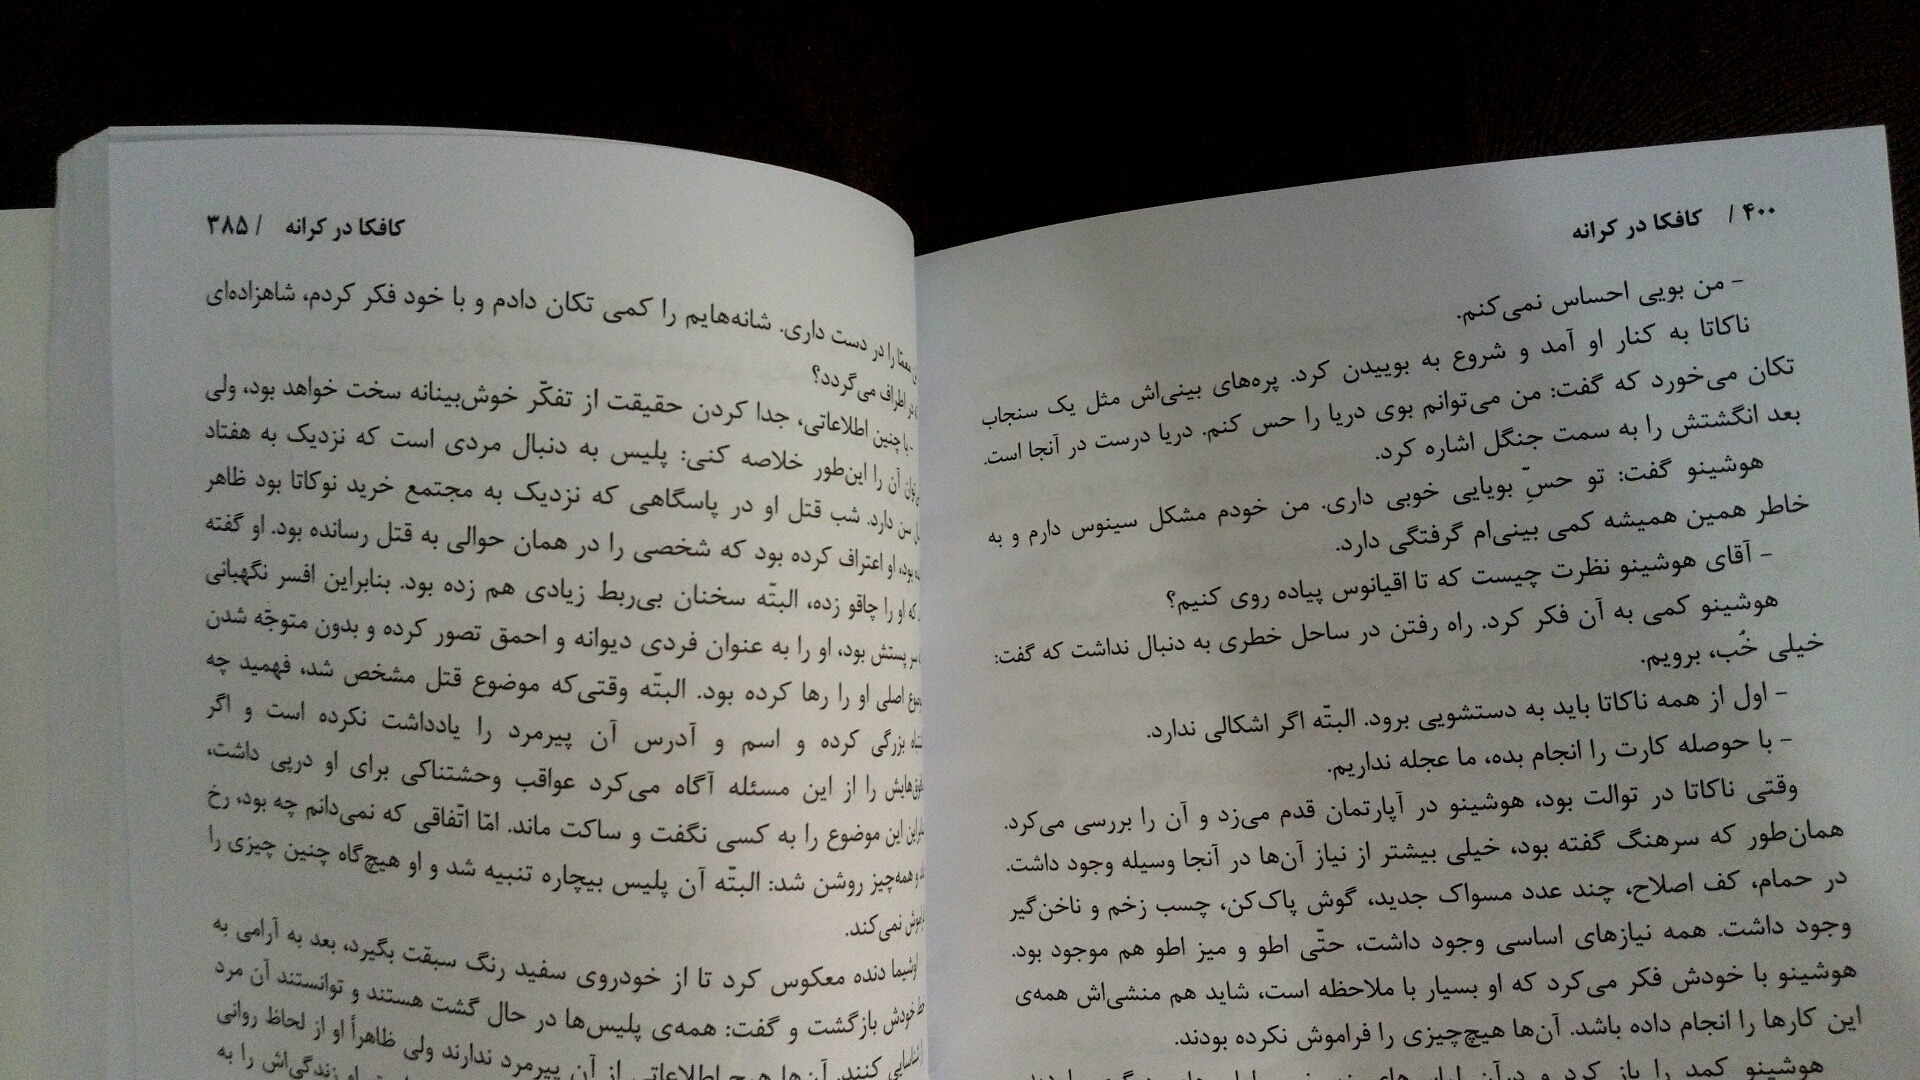 ۴۰۰ / کافکا در کرانه
– من بویی احساس نمی‌کنم.
ناکاتا به کنار او آمد و شروع به بوییدن کرد. پره‌های بینی‌اش مثل یک سنجاب
تکان می‌خورد که گفت: من می‌توانم بوی دریا را حس کنم. دریا درست در آنجا است.
بعد انگشتش را به سمت جنگل اشاره کرد.
هوشینو گفت: تو حسِّ بویایی خوبی داری. من خودم مشکل سینوس دارم و به
خاطر همین همیشه کمی بینی‌ام گرفتگی دارد.
– آقای هوشینو نظرت چیست که تا اقیانوس پیاده روی کنیم؟
هوشینو کمی به آن فکر کرد. راه رفتن در ساحل خطری به دنبال نداشت که گفت:
خیلی خُب، برویم.
– اول از همه ناکاتا باید به دستشویی برود. البتّه اگر اشکالی ندارد.
– با حوصله کارت را انجام بده، ما عجله نداریم.
وقتی ناکاتا در توالت بود، هوشینو در آپارتمان قدم می‌زد و آن را بررسی می‌کرد.
همان‌طور که سرهنگ گفته بود، خیلی بیشتر از نیاز آن‌ها در آنجا وسیله وجود داشت.
در حمام، کف اصلاح، چند عدد مسواک جدید، گوش پاک‌کن، چسب زخم و ناخن‌گیر
وجود داشت. همه نیازهای اساسی وجود داشت، حتّی اطو و میز اطو هم موجود بود.
هوشینو با خودش فکر می‌کرد که او بسیار با ملاحظه است، شاید هم منشی‌اش همه‌ی
این کارها را انجام داده باشد. آن‌ها هیچ‌چیزی را فراموش نکرده بودند.
هوشینو کمد را باز کرد و
کافکا در کرانه / ۳۸۵
معمّا را در دست داری. شانه‌هایم را کمی تکان دادم و با خود فکر کردم، شاهزاده‌ای
در اطراف می‌گردد؟
– با چنین اطلاعاتی، جدا کردن حقیقت از تفکّر خوش‌بینانه سخت خواهد بود، ولی
آن را این‌طور خلاصه کنی: پلیس به دنبال مردی است که نزدیک به هفتاد
سن دارد. شب قتل او در پاسگاهی که نزدیک به مجتمع خرید نوکاتا بود ظاهر
بود، او اعتراف کرده بود که شخصی را در همان حوالی به قتل رسانده بود. او گفته
که او را چاقو زده، البتّه سخنان بی‌ربط زیادی هم زده بود. بنابراین افسر نگهبانی
پستش بود، او را به عنوان فردی دیوانه و احمق تصور کرده و بدون متوجّه شدن
اصلی او را رها کرده بود. البتّه وقتی‌که موضوع قتل مشخص شد، فهمید چه
بزرگی کرده و اسم و آدرس آن پیرمرد را یادداشت نکرده است و اگر
را از این مسئله آگاه می‌کرد عواقب وحشتناکی برای او درپی داشت،
این موضوع را به کسی نگفت و ساکت ماند. امّا اتّفاقی که نمی‌دانم چه بود، رخ
و همه‌چیز روشن شد: البتّه آن پلیس بیچاره تنبیه شد و او هیچ‌گاه چنین چیزی را
نمی‌کند.
دنده معکوس کرد تا از خودروی سفید رنگ سبقت بگیرد، بعد به آرامی به
خودش بازگشت و گفت: همه‌ی پلیس‌ها در حال گشت هستند و توانستند آن مرد
شناسایی کنند. آن‌ها هیچ اطلاعاتی از آن پیرمرد ندارند ولی ظاهراً او از لحاظ روانی
زندگی‌اش را به